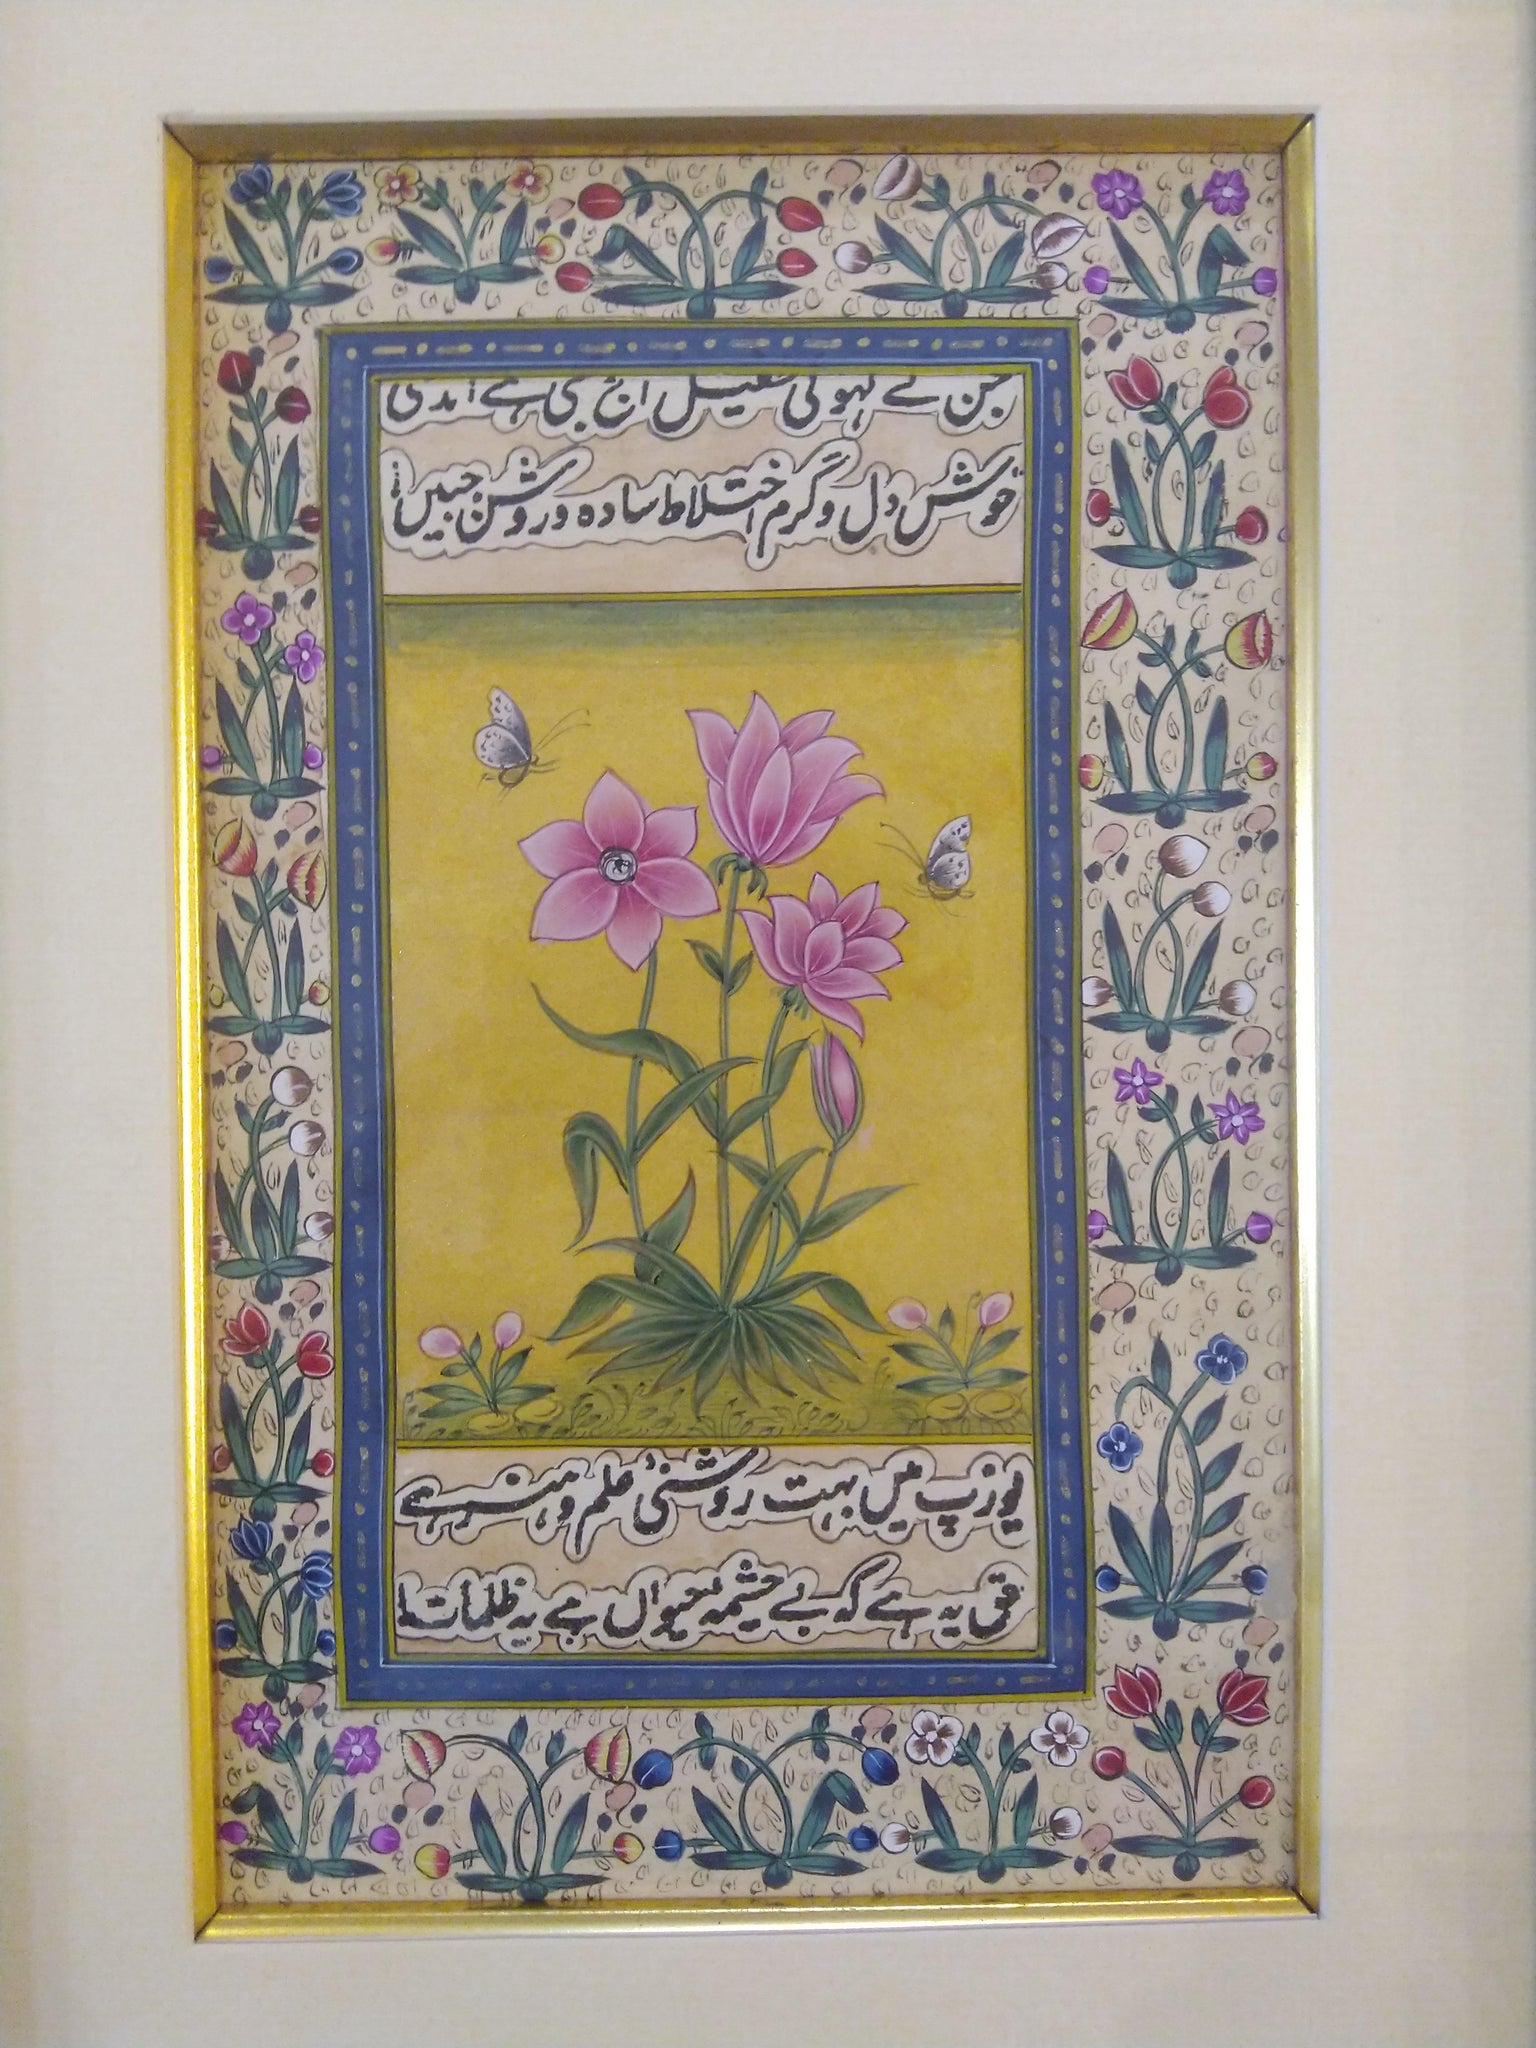 جن کے لہو کی طفیل آج بھی ہے
خوش دل و گرم اختلاط سادہ و روشن جبیں
یورپ میں بہت روشنئ علم و ہنر ہے
حق یہ ہے کہ بے چشمۂ حیواں ہے یہ ظلمات